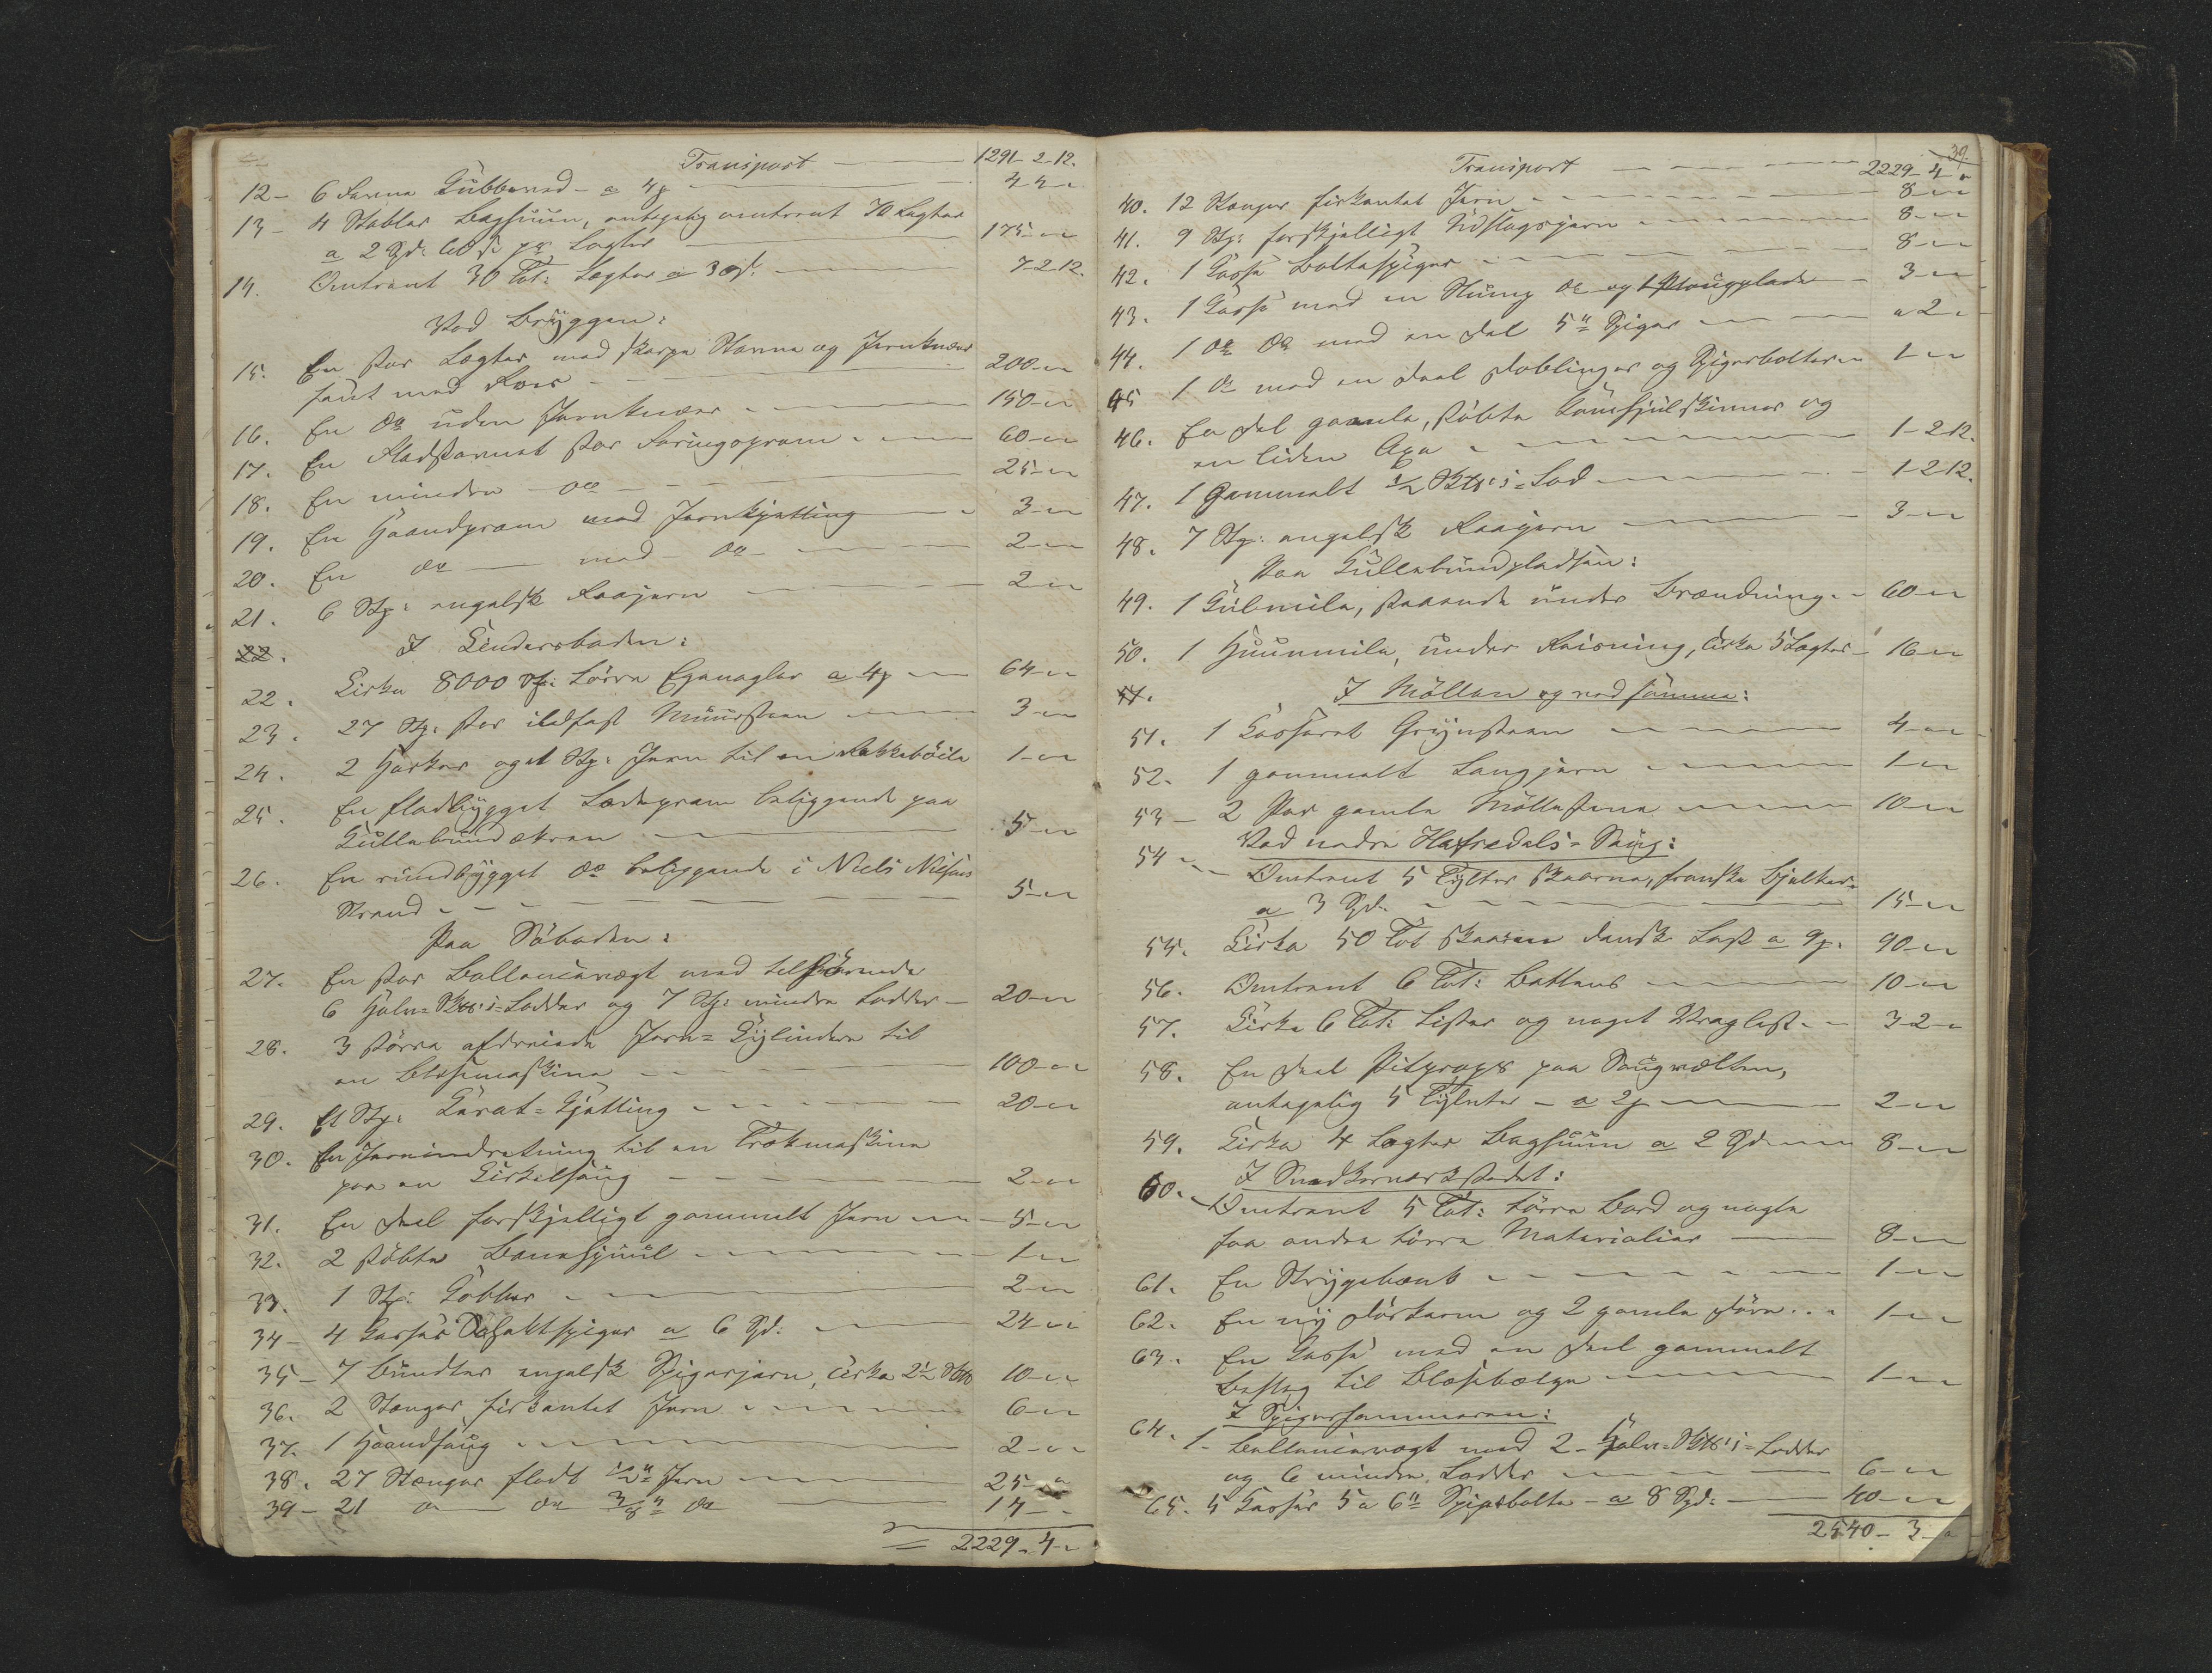 Transport 1291-2-12.
12- 6 Favne Kubbeved - a 4 44-"-
13- 4 Stabler Baghuun, antagelig omtrent 70 Lægter
a 2 Spd: 60 s pr Lægter 175-"-"
14. Omtrent 30 Tot: Lægter a 30 s. 7-2-12.
Ved Bryggen:
15. En stor Lægter med skarpe Stavne og Jernknæer
samt med Roer 200-"-"
16. En do uden Jernknæer 150-"-"
17. En Fladstavnet stor Føringspram 60-"-"
18. En mindre do 25-"-"
19. En Haandpram med Jernkjetting 3-"-"
20. En do med do 2-"-"
21. 6 Stp: engelsk Raajern 2-"-"
22. I boden:
22. Cirka 8000 Stk: tørre Egenagler a 4 64-"-"
23. 27 Stp: stor ildfast Muursteen 3-"-"
24. 2 Harker og et Stp: Jern til en Rakkebøile 1-"-"
25. En fladbygget Ladepram beliggende paa
Kullebundækren 5-"-"
26. En rundbygget do beliggende i Niels Nilsens
Strand 5-"-"
Paa Søboden:
27. En stor Ballancevægt med tilhørende
6 Halv-Skt's-Lodder og 7 Stp: mindre Lodder 20-"-"
28. 3 større afdreiede Jern-Cylindere til
en Blæsemaskine 100-"-"
29. Et Stp: Kjætting 20-"-"
30. En Jernindretning til en Trækmaskine
paa en Cirkelsaug 2-"-"
31. En Deel forskjelligt gammelt Jern 5-"-"
32. 2 støbte Banehjuul 1-"-"
33. 1 Stp: Kobber 2-"-"
34- 4 Kasser Spiger a 6 Spd: 24-"-"
35- 7 Bundter engelsk Spigerjern, cirka 2½ Skt 10-"-"
36. 2 Stænger firkantet Jern 6-"-"
37. 1 Haandsaug 2-"-"
38. 27 Stænger fladt ½" Jern 25-"
39- 21 do do 3/8" do 14-"-
2229-4-"
39.
Transport 2229-4-"
40. 12 Stænger firkantet Jern 8-"-"
41. 9 Stp: forskjelligt Udslagsjern 8-"-"
42. 1 Kasse Boltespiger 8-"-"
43. 1 Kasse med en Slump do og 1 Plougplade 3-"-"
44. 1 do do med en Del 5" Spiger "2-"
45 1 do med en Deel Doblinger og Spigerbolter 1-"-"
46. En Del gamle, støbte Kamhjulskinner og
en liden Axe 1-2-12.
47. 1 gammelt ½ Skt's-Lod 1-2-12.
48. 7 Stp: engelsk Raajern 3-"-"
Paa Kullebundpladsen:
49. 1 Kulmile, staaende under Brænding 60-"-"
50. 1 Huunmile, under Reisning, cirka 5 Lægter 16-"-"
51. I Møllen og ved samme:
51. 1 Grynsteen 4-"-"
52. 1 gammelt Langjern 1-"-"
53- 2 Par gamle Møllestene 10-"-"
Ved nedre Hafredals-Saug:
54 Omtrent 5 Tylter skaarne, franske Bjelker
a 3 Spd. 15-"-"
55. Cirka 50 Tot skaaren dansk Last a 9 90-"-"
56. Omtrent 6 Tot: Battens 10-"-"
57. Cirka 6 Tot: Lister og noget Vraglast 3-2-"
58. En Deel Pitprops paa Saugvælten,
antagelig 5 Tylvter - a 2 2-"-"
59. Cirka 4 Lægter Baghuun a 2 Spd 8-"-"
I Snedkerværkstedet:
60. Omtrent 5 Tot: tørre Bord og nogle
faa andre tørre Materialier 8-"-"
61. En Strygebænk 1-"-"
62. En ny Dørkarm og 2 gamle Døre 1-"-"
63. En Kasse med en Deel gammelt
Beslag til Blæsebælge 1-"-"
I Spigerhammeren:
64. 1- Ballancevægt med 2- Halv-Skt's-Lodder
og 6 mindre Lodder 6-"-"
65. 5 Kasser 5 a 6" Spigerbolte - a 8 Spd: 40-"-"
2540-3-"